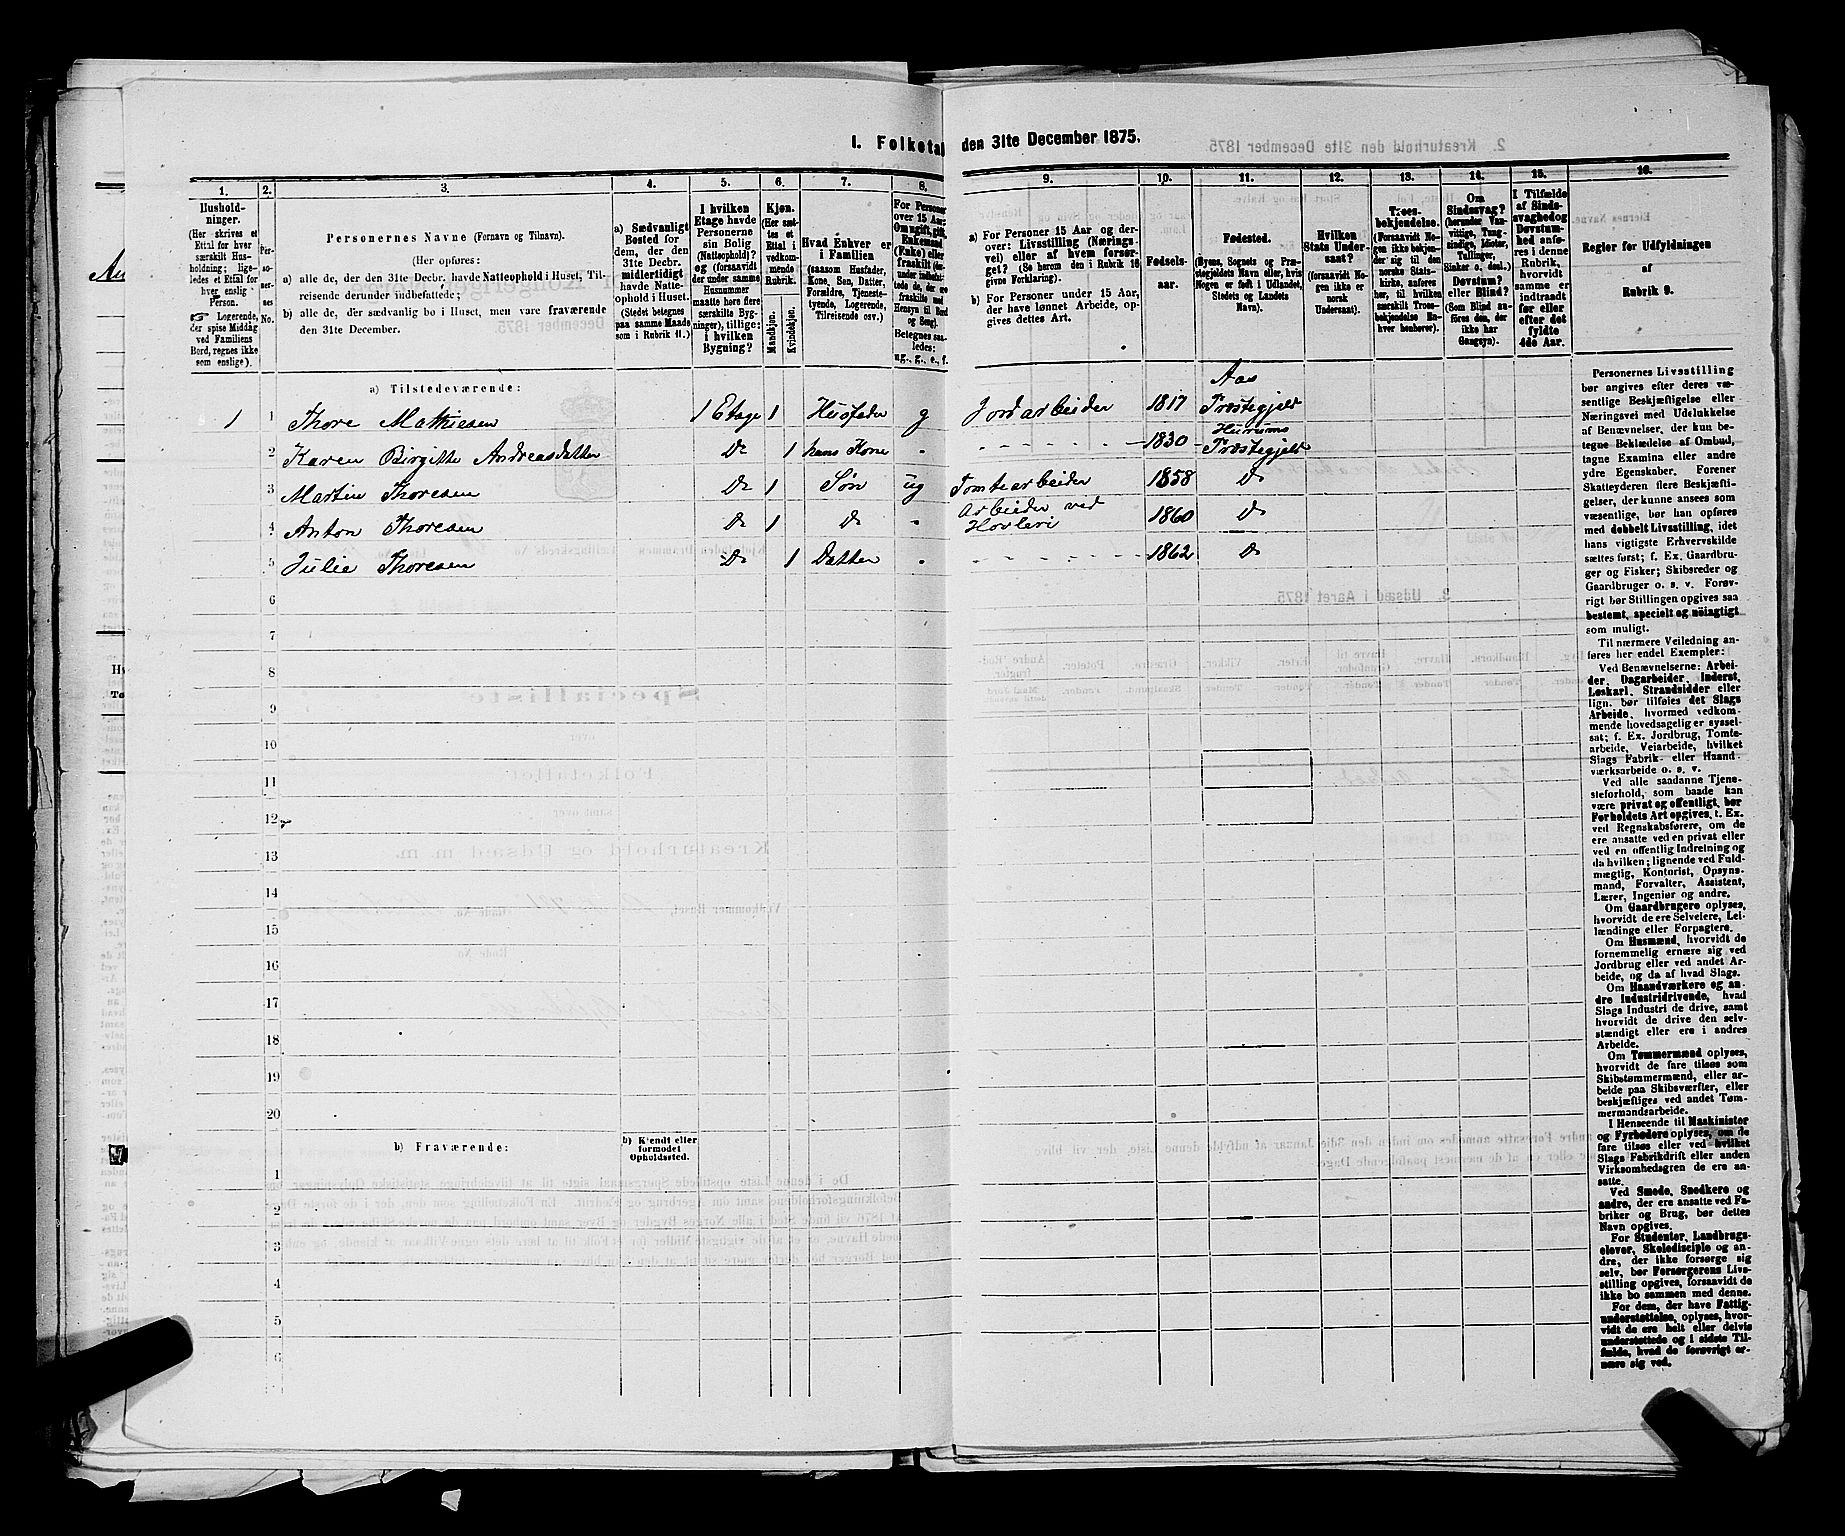 I. Folketal den 31te December 1875.
1.
2.
3.
4.
5.
6.
7.
8.
9.
10.
11.
12.
13.
14.
15.
16.
Hushold-
ninger.
(Her skrives et
Ettal for hver
særskilt Hus-
holdning; lige-
ledes et Ettal for
hver enslig
Person.
☞ Logerende,
der spise Middag
ved Familiens
Bord, regnes ikke
som enslige).
Per-
so-
ner-
nes
No.
Personernes Navne (Fornavn og Tilnavn).
(Her opføres:
a) alle de, der den 31te Decbr. havde Natteophold i Huset, Til-
reisende derunder indbefattede;
b) alle de, der sædvanlig bo i Huset, men vare fraværende
den 31te December.
a) Sædvanligt
Bosted for
dem, der den
31te Decbr.
midlertidigt
havde Natte-
ophold i Huset.
(Stedet betegnes
paa samme Maade
som i Rubrik 11.)
I hvilken
Etage havde
Personerne
sin Bolig
(Natteophold)?
og (forsaavidt
der under samme
Husnummer
maatte høre flere
særskilte Byg-
ninger), tillige:
i hvilken
Bygning?
Kjøn.
(Her sæt-
tes et
Ettal i
vedkom-
mende
Rubrik.
Mandkjøn.
Kvindekjøn.
Hvad Enhver er
i Familien
(saasom Husfader,
Kone, Søn, Datter,
Forældre, Tjeneste-
tyende, Logerende,
Tilreisende osv.)
For Personer
over 15 Aar:
Om ugift, gift,
Enkemand
(Enke) eller
fraskilt
Betegnes saa-
ledes:
ug., g., e., f.
a) For Personer 15 Aar og der-
over: Livsstilling (Nærings-
vei) eller af hvem forsør-
get? (Se herom den i Rubrik 16
givne Forklaring).
b) For Personer under 15 Aar,
der have lønnet Arbeide, op-
gives dettes Art.
Fødsels-
aar.
Fødested.
(Byens, Sognets og Præ-
stegjeldets Navn eller, hvis
Nogen er født i Udlandet,
Stedets og Landets
Navn).
Hvilken
Stats Under-
saat?
(forsaavidt No-
gen ikke er
norsk
Undersaat).
Troes-
bekjendelse.
(Forsaavidt No-
gen ikke bekjen-
der sig til den
norske Stats-
kirke, anføres
her, til hvilken
særskilt Troes-
bekjendelse En-
hver henhører).
Om
Sindssvag?
(herunder Van-
vittige, Tung-
sindige, Idioter,
Tullinger,
Sinker o. desl.)
Døvstum?
eller Blind?
(Som Blind an-
føres den, der
ikke har
Gangsyn).
I Tilfælde
af Sinds-
svaghed og
Døvstum-
hed anfø-
res i denne
Rubrik,
hvorvidt
samme er
indtraadt
før eller
efter det
fyldte
4de Aar.
Regler for Udfyldningen
af
Rubrik 9.
a) Tilstedeværende:
1 1 Thore Mathiesen 1 Etage 1 Husfader g Jordarbeider 1817 Aas Præstegjeld
2 Karen Birgitte Andreasdatter Do 1 hans Kone " 1830 Hurums Præstegjeld
3 Martin Thoresen Do 1 Søn ug Tomtearbeider 1858 Do
4 Anton Thoresen Do 1 Do " Arbeider ved Hovleri 1860 Do
5 Julie Thoresen Do 1 Datter " 1862 Do
6
7
8
9
10
11
12
13
14
15
16
17
18
19
20
b) Fraværende:
b) Kjendt eller
formodet
Opholdssted.
1
2
3
4
5
6
Personernes Livsstilling
bør angives efter deres væ-
sentlige Beskjæftigelse eller
Næringsvei med Udelukkelse
af Benævnelser, der kun be-
tegne Beklædelse af Ombud,
tagne Examina eller andre
ydre Egenskaber. Forener
Skatteyderen flere Beskjæfti-
gelser, der kunne ansees som
væsentlige, bør han opføres
med dobbelt Livsstilling, idet
hans vigtigste Erhvervskilde
sættes først; f. Ex. Gaardbru-
ger og Fisker; Skibsreder og
Gaardbruger o. s. v. Forøv-
rigt bør Stillingen opgives saa
bestemt, specielt og nøiagtigt
som muligt.
Til nærmere Veiledning an-
føres her endel Exempler:
Ved Benævnelserne: Arbei-
der, Dagarbeider, Inderst,
Løskarl, Strandsidder eller
lign. bør tilføies det Slags
Arbeide, hvormed vedkom-
mende hovedsagelig er syssel-
sat; f. Ex. Jordbrug, Tomte-
arbeide, Veiarbeide, hvilket
Slags Fabrik- eller Haand-
værksarbeide o. s. v.
Ved alle saadanne Tjene-
steforhold, som baade kan
være privat og offentligt, bør
Forholdets Art opgives, t. Ex.
ved Regnskabsførere, om de
ere ansatte ved en privat eller
ved en offentlig Indretning og
da hvilken; lignende ved Fuld-
mægtig, Kontorist, Opsyns-
mand, Forvalter, Assistent,
Lærer, Ingeniør og andre.
Om Gaardbrugere oplyses,
hvorvidt de ere Selveiere, Lei-
lændinge eller Forpagtere.
Om Husmænd, hvorvidt de
fornemmelig ernære sig ved
Jordbrug eller ved andet Ar-
beide, og da af hvad Slags.
Om Haandværkere og an-
dre Industridrivende, hvad
Slags Industri de drive, samt
hvorvidt de drive den selv-
stændigt eller ere i andres
Arbeide.
Om Tømmermænd oplyses,
hvorvidt de fare tilsøs som
Skibstømmermænd, eller ar-
beide paa Skibsværfter, eller
beskjæftiges ved andet Tøm-
mermandsarbeide.
I Henseende til Maskinister
og Fyrbødere oplyses, om de
fare tilsøs eller ved hvilket
Slags Fabrikdrift eller anden
Virksomhedsgren de ere an-
satte.
Ved Smede, Snedkere og
andre, der ere ansatte ved Fa-
briker og Brug, bør dettes
Navn opgives.
For Studenter, Landbrugs-
elever, Skoledisciple og an-
dre, der ikke forsørge sig
selv, bør Forsørgerens Livs-
stilling opgives, forsaavidt de
ikke bo sammen med denne.
For dem, der have Fattig-
understøttelse, oplyses, hvor-
vidt de ere helt eller delvis
understøttede og i sidste Til-
fælde, hvad de forøvrigt er-
nære sig ved.